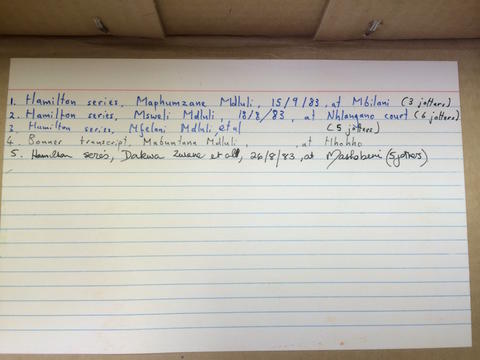 1. Hamilton series, Maphumzane Mdluli, 15/9/83, at Mbilani (3 jotters)
2. Hamilton series, Msweli Mdluli, 18/8/83, at Nhlangano court (6 jotters)
3. Hamilton series, Mfelani Mdluli, et al (5 jotters)
4. Bonner transcript, Mabuntana Mdluli, , at Hhohho
5. Hamilton series, Dakwa Zwane et all, 26/8/83, at Mashobeni (5 jotters)